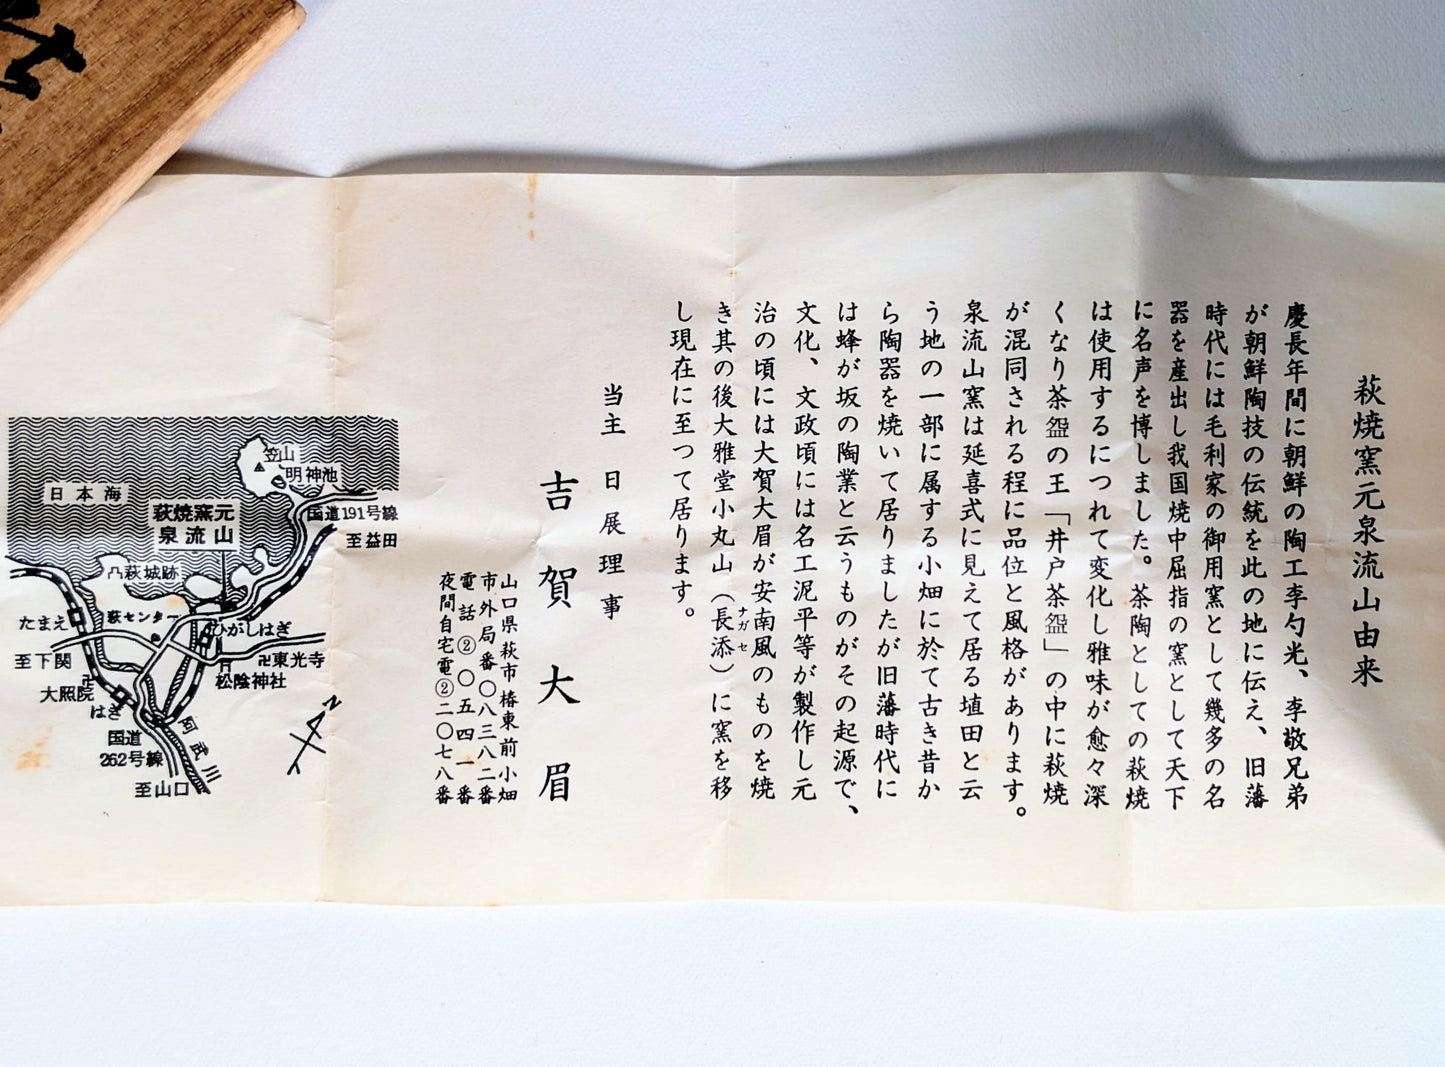 萩焼窯元泉流山由来
慶長年間に朝鮮の陶工李勺光、李敬兄弟
が朝鮮陶技の伝統を此の地に伝え、旧藩
時代には毛利家の御用窯として幾多の名
器を産出し我国焼中屈指の窯として天下
に名声を博しました。茶陶としての萩焼
は使用するにつれて変化し雅味が愈々深
くなり茶盌の王「井戸茶盌」の中に萩焼
が混同される程に品位と風格があります。
泉流山窯は延喜式に見えて居る埴田と云
う地の一部に属する小畑に於て古き昔か
ら陶器を焼いて居りましたが旧藩時代に
は蜂が坂の陶業と云うものがその起源で、
文化、文政頃には名工泥平等が製作し元
治の頃には大賀大眉が安南風のものを焼
き其の後大雅堂小丸山（長添）に窯を移
ナガセ
し現在に至つて居ります。
当主 日展理事
吉賀大眉
山口県萩市椿東前小畑
市外局番〇八三八二番
電話②〇五四一番
夜間自宅電②二〇七八番
日本海
笠山
明神池
萩焼窯元
泉流山
国道191号線
至益田
凸萩城跡
たまえ
萩センター
ひがしはぎ
至下関
卍東光寺
松陰神社
卍
大照院
はぎ
国道
262号線
阿武川
至山口
N